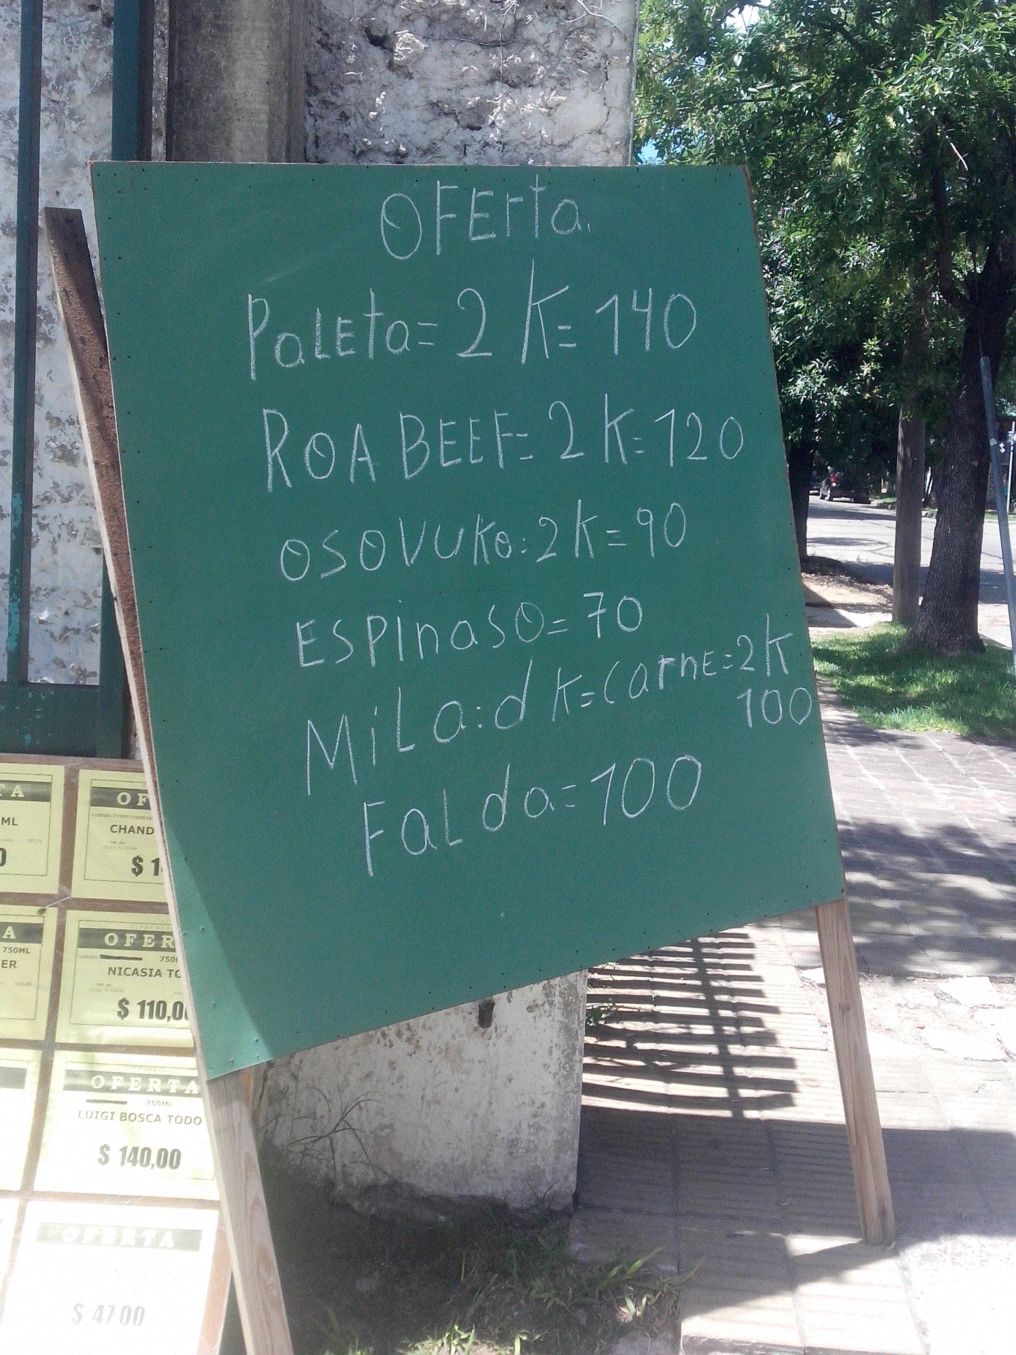 OFErta.
PaLEta= 2 K= 140
ROA BEEF= 2 K= 120
OSOVUKo: 2K= 90
ESPinaSO= 70
MiLa: d K= CarnE= 2K
100
FaLda= 100
TA
ML
0
OF
CHAND
$ 1
A
750ML
ER
OFER
750
NICASIA TO
$ 110,0
OFERTA
750ML
LUIGI BOSCA TODO
$ 140,00
OFERTA
$ 4700